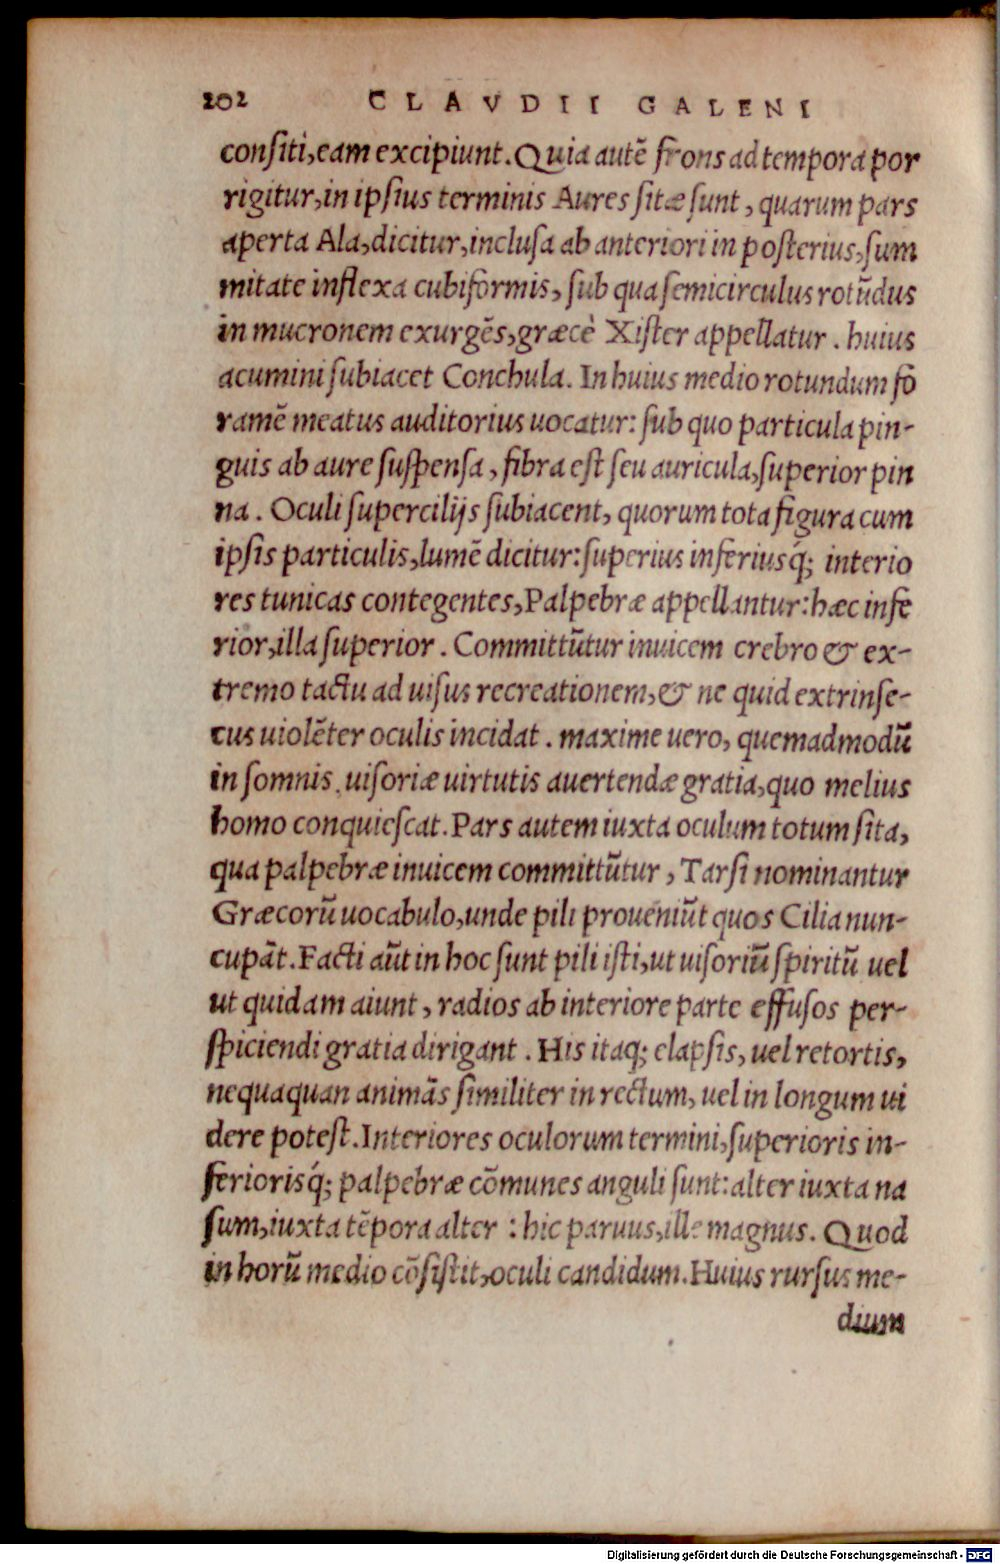 202 CLAVDII GALENI
conſiti, eam excipiunt. Quia autẽ frons ad tempora por
rigitur, in ipſius terminis Aures ſitæ ſunt, quarum pars
aperta Ala, dicitur, incluſa ab anteriori in poſterius, ſum
mitate inflexa cubiformis, ſub qua ſemicirculus rotũdus
in mucronem exurgẽs, græcè Xiſter appellatur. huius
acumini ſubiacet Conchula. In huius medio rotundum fo
ramẽ meatus auditorius uocatur: ſub quo particula pin-
guis ab aure ſuſpenſa, fibra eſt ſeu auricula, ſuperior pin
na. Oculi ſupercilijs ſubiacent, quorum tota figura cum
ipſis particulis, lumẽ dicitur: ſuperius inferiusq́; interio
res tunicas contegentes, Palpebræ appellantur: hæc infe
rior, illa ſuperior. Committũtur inuicem crebro & ex-
tremo tactu ad uiſus recreationem, & ne quid extrinſe-
cus uiolẽter oculis incidat. maxime uero, quemadmodũ
in ſomnis, uiſoriæ uirtutis auertendæ gratia, quo melius
homo conquieſcat. Pars autem iuxta oculum totum ſita,
qua palpebræ inuicem committũtur, Tarſi nominantur
Græcorũ uocabulo, unde pili proueniũt quos Cilia nun-
cupãt. Facti aũt in hoc ſunt pili iſti, ut uiſoriũ ſpiritũ uel
ut quidam aiunt, radios ab interiore parte effuſos per-
ſpiciendi gratia dirigant. His itaq; elapſis, uel retortis,
nequaquan animãs ſimiliter in rectum, uel in longum ui
dere poteſt. Interiores oculorum termini, ſuperioris in-
ferioris q́; palpebræ cõmunes anguli ſunt: alter iuxta na
ſum, iuxta tẽpora alter: hic paruus, ille magnus. Quod
in horũ medio cõſiſtit, oculi candidum. Huius rurſus me-
dium
Digitalisierung gefördert durch die Deutsche Forschungsgemeinschaft - DFG